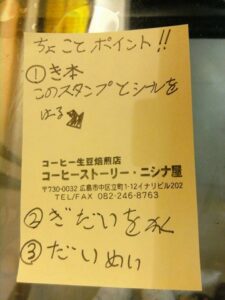 ちょこっとポイント!!
①き本
このスタンプとシールを
はる
コーヒー生豆焙煎店
コーヒーストーリー・ニシナ屋
〒730-0032 広島市中区立町1-12イナリビル202
TEL/FAX 082-246-8763
②ぎだいを
③だいめい